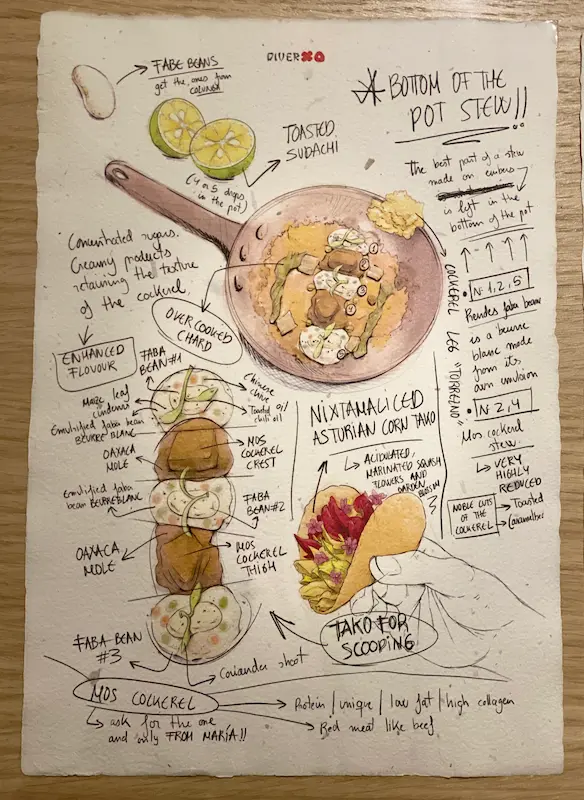 DIVERXO
FABE BEANS
get the ones from
COLUNGA
TOASTED
SUDACHI
(4 or 5 drops
in the pot)
BOTTOM OF THE
POT STEW!!
The best part of a stew
made on embers
is left in the
bottom of the pot
COCKEREL LEG "TORREZNO"
• Nº 1, 2, 5
Renders faba bean
is a beurre
blanc made
from its
own emulsion
• Nº 2, 4
Mos cockerel
stew.
VERY
HIGHLY
REDUCED
NOBLE CUTS
OF THE
COCKEREL
Toasted
Concentrated sugars.
Creamy products
retaining the texture
of the cockerel
OVERCOOKED
CHARD
ENHANCED
FLAVOUR
FABA
BEAN #1
Chinese
chive oil
Toasted
chili oil
leaf
Emulsified faba bean
BEURRE BLANC
OAXACA
MOLE
MOS
COCKEREL
CREST
Emulsified faba
bean BEURRE BLANC
FABA
BEAN #2
OAXACA
MOLE
MOS
COCKEREL
THIGH
FABA BEAN
#3
Coriander shoot
NIXTAMALICED
ASTURIAN CORN TAKO
ACIDULATED,
MARINATED SQUASH
FLOWERS AND
GARDEN
TAKO FOR
SCOOPING
MOS COCKEREL
ask for the one
and only FROM MARÍA!!
Protein / unique / low fat / high collagen
Red meat like beef